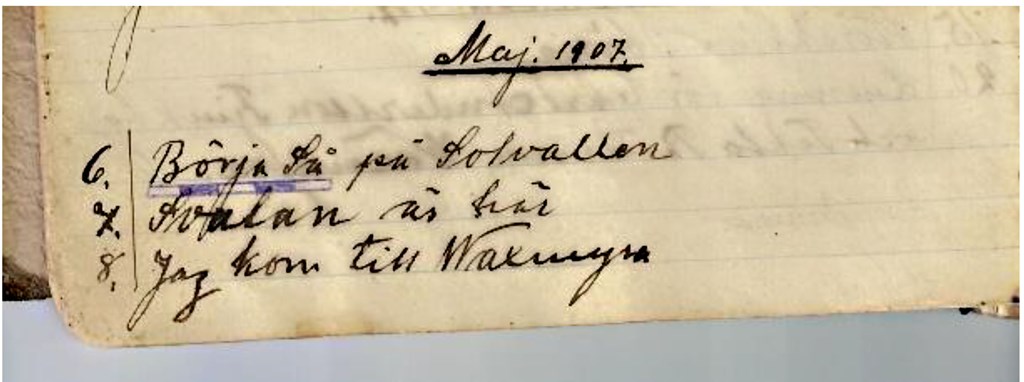 Maj. 1907.
6. Börja Så på Solvallen
7. Svalan är här
8. Jag kom till Waxmyra